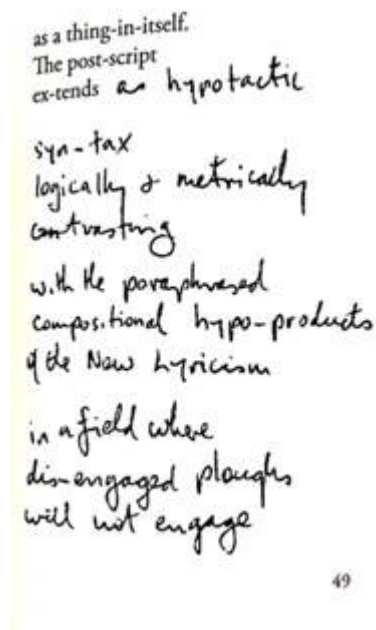 as a thing-in-itself.
The post-script
ex-tends as hypotactic
syn-tax
logically & metrically
contrasting
with the paraphrased
compositional hypo-products
of the New Lyricism
in a field where
dis-engaged ploughs
will not engage
49